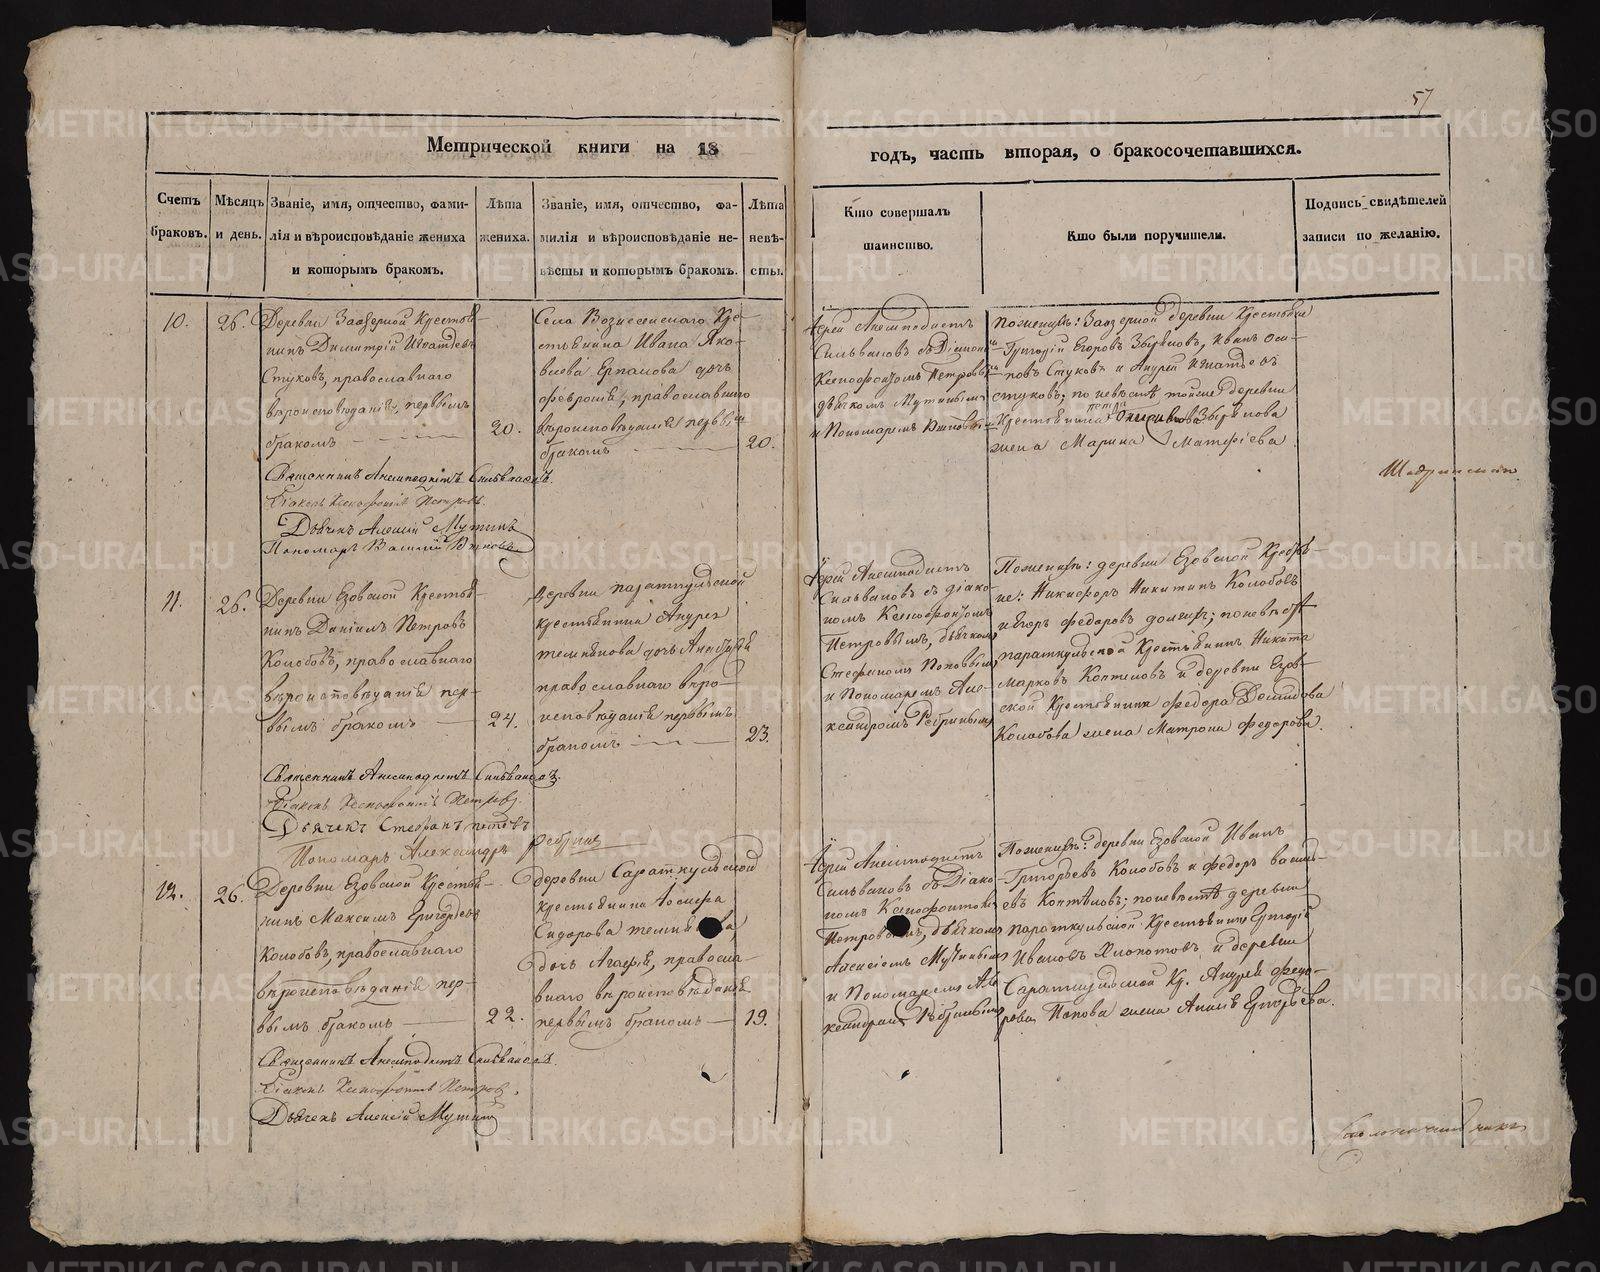 57
Метрической книги на 18
годъ, часть вторая, о бракосочетавшихся.
Счетъ браковъ.
Мѣсяцъ и день.
Званіе, имя, отчество, фами-
лія и вѣроисповѣданіе жениха
и которымъ бракомъ.
Лѣта
жениха.
Званіе, имя, отчество, фа-
милія и вѣроисповѣданіе не-
вѣсты и которымъ бракомъ.
Лѣта
невѣ-
сты.
Кто совершалъ
таинство.
Кто были поручители.
Подпись свидѣтелей
записи по желанію.
10.
26.
Деревни Заозерной Крестья-
нинъ Димитрій Игнатьевъ
Стуковъ, православнаго
вѣроисповѣданія, первымъ
бракомъ
20.
Села Вознесенскаго Кре-
стьянина Ивана Яко-
влева Ермакова дочь
Февронія, православнаго
вѣроисповѣданія первымъ
бракомъ
20.
Іерей Анемподистъ
Сильвановъ съ Діакономъ
Ксенофонтомъ Петровымъ
дьячкомъ Мутинымъ
и Пономаремъ
По женихѣ: Заозерной деревни Крестьяне
Григорій Егоровъ Зыряновъ, Иванъ Оси-
повъ Стуковъ и Андрей Игнатьевъ
Стуковъ; по невѣстѣ тойже деревни
Крестьянина Зырянова
жена Марина Матфіева
Священникъ Анемподистъ Сильвановъ.
Діаконъ Ксенофонтъ Петровъ.
Дьячекъ Алексій Мутинъ
Пономарь Василій
11.
26.
Деревни Езовской Крестья-
нинъ Даніилъ Петровъ
Колобовъ, православнаго
вѣроисповѣданія пер-
вымъ бракомъ
24.
Деревни Параткульской
крестьянина Андрея
дочь
православнаго вѣро-
исповѣданія первымъ
бракомъ
23.
Іерей Анемподистъ
Сильвановъ съ діако-
номъ Ксенофонтомъ
Петровымъ, дьячкомъ
Стефаномъ Поповымъ
и Пономаремъ Але-
ксандромъ
По женихѣ: деревни Езовской Крестья-
не: Никифоръ Никитинъ Колобовъ
и Егоръ Федоровъ; по невѣстѣ
параткульской Крестьянинъ Никита
Марковъ Коптеловъ и деревни Езов-
ской Крестьянина Федора
Колобова жена Матрона Федорова.
Священникъ Анемподистъ Сильвановъ.
Діаконъ Ксенофонтъ Петровъ.
Дьячекъ Стефанъ Поповъ
Пономарь Александръ
12.
26.
Деревни Езовской Крестья-
нинъ Максимъ Григорьевъ
Колобовъ, православнаго
вѣроисповѣданія пер-
вымъ бракомъ
22.
деревни Сараткульской
крестьянина Іосифа
Сидорова
дочь Агафія, правосла-
внаго вѣроисповѣданія
первымъ бракомъ
19.
Іерей Анемподистъ
Сильвановъ съ Діако-
номъ Ксенофонтомъ
Петровымъ, дьячкомъ
Алексіемъ Мутинымъ
и Пономаремъ Але-
ксандромъ
По женихѣ: деревни Езовской Иванъ
Григорьевъ Колобовъ и Федоръ Василь-
евъ Коптеловъ; по невѣстѣ деревни
параткульской Крестьянинъ Григорій
Ивановъ и деревни
Кр. Андрея Федо-
рова Попова жена Егорьева.
Священникъ Анемподистъ Сильвановъ.
Діаконъ Ксенофонтъ Петровъ.
Дьячекъ Алексій Мутинъ
METRIKI.GASO-URAL.RU